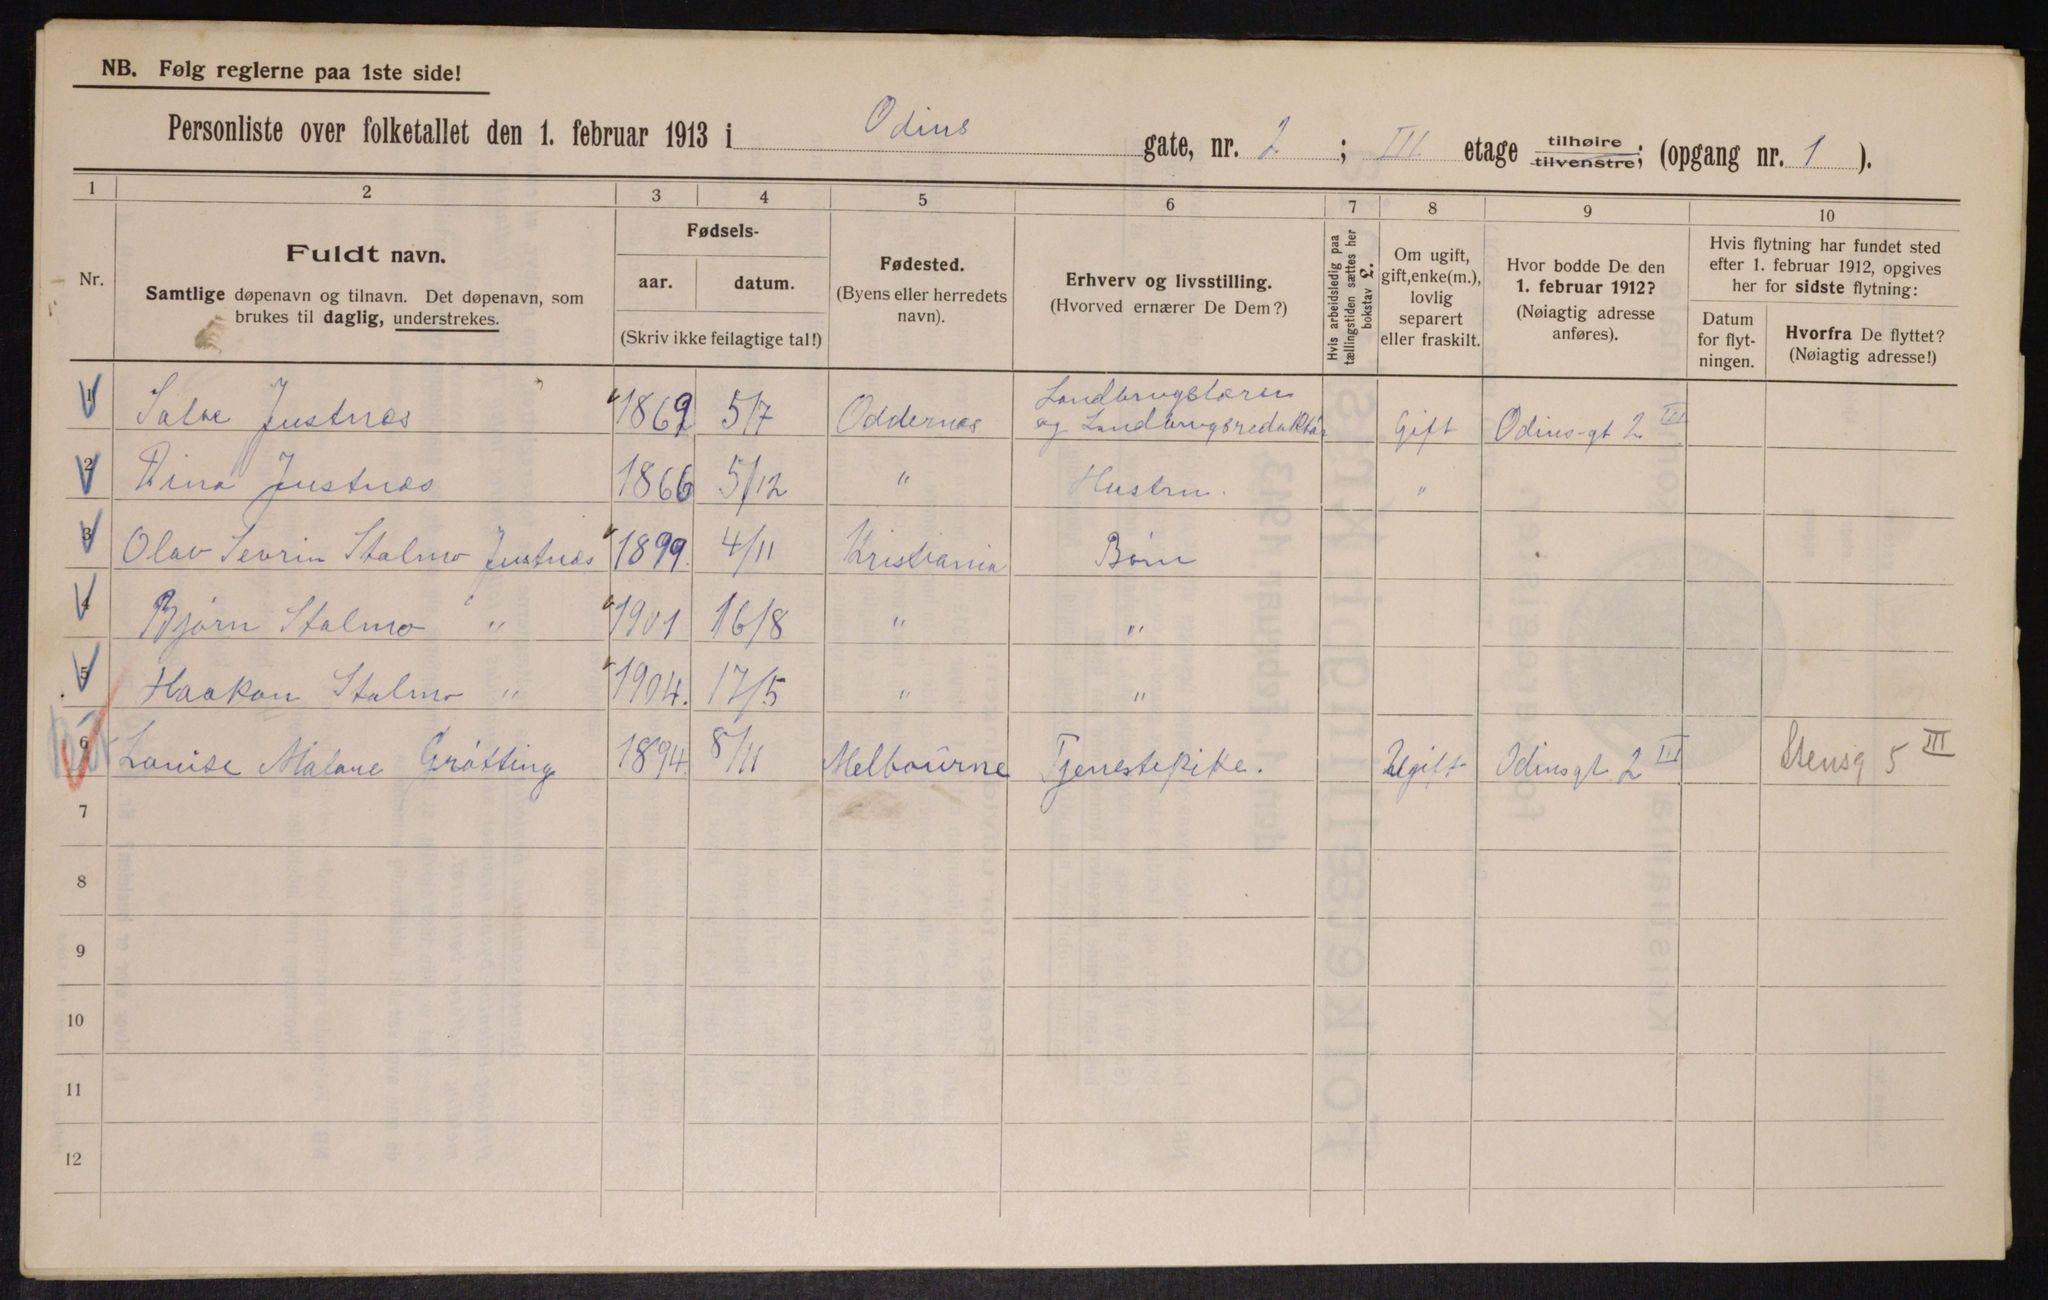 NB. Følg reglerne paa 1ste side!
Personliste over folketallet den 1. februar 1913 i Odins gate, nr. 2 ; III etage tilhøire tilvenstre; (opgang nr. 1 ).
1 2 3 4 5 6 7 8 9 10
Nr.
Fuldt navn.
Samtlige døpenavn og tilnavn. Det døpenavn, som
brukes til daglig, understrekes.
Fødsels-
aar. datum.
(Skriv ikke feilagtige tal!)
Fødested.
(Byens eller herredets
navn).
Erhverv og livsstilling.
(Hvorved ernærer De Dem?)
Hvis arbeidsledig paa
tællingstiden sættes her
bokstav L.
Om ugift,
gift, enke(m.),
lovlig
separert
eller fraskilt.
Hvor bodde De den
1. februar 1912?
(Nøiagtig adresse
anføres).
Hvis flytning har fundet sted
efter 1. februar 1912, opgives
her for sidste flytning:
Datum
for flyt-
ningen.
Hvorfra De flyttet?
(Nøiagtig adresse!)
1 Salve Justnæs 1869 5/7 Oddernæs Landbrugslærer
og Landbrugsredaktør Gift Odins-gt 2 III
2 Dina Justnæs 1866 5/12 " Hustru. "
3 Olav Sevrin Stalmo Justnæs 1899. 4/11 Kristiania Børn
4 Bjørn Stalmo " 1901 16/8 " "
5 Haakon Stalmo " 1904. 17/5 " "
6 Louise Malane Grøtting 1894. 8/11 Melbourne Tjenestepike. Ugift Odinsgt. 2 III Stensg 5 III
7
8
9
10
11
12